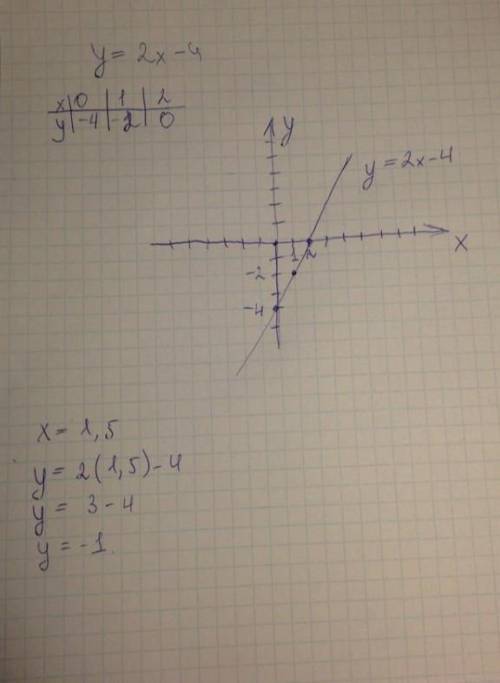 y = 2x - 4
x | 0 | 1 | 2
y | -4 | -2 | 0
y
y = 2x - 4
1 2
x
-2
-4
x = 1,5
y = 2(1,5) - 4
y = 3 - 4
y = -1